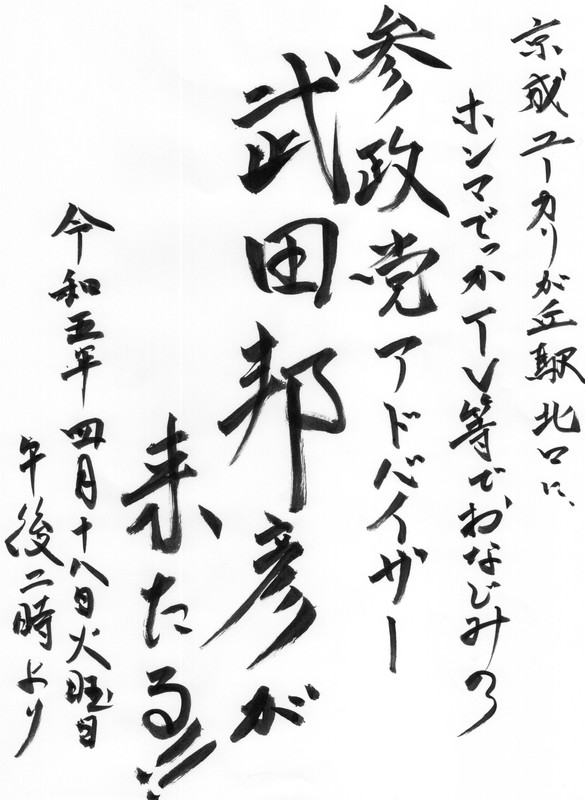 京成ユーカリが丘駅北口に、
ホンマでっかTV等でおなじみの
参政党アドバイザー
武田邦彦が
来たる!!
令和五年四月十八日火曜日
午後二時より